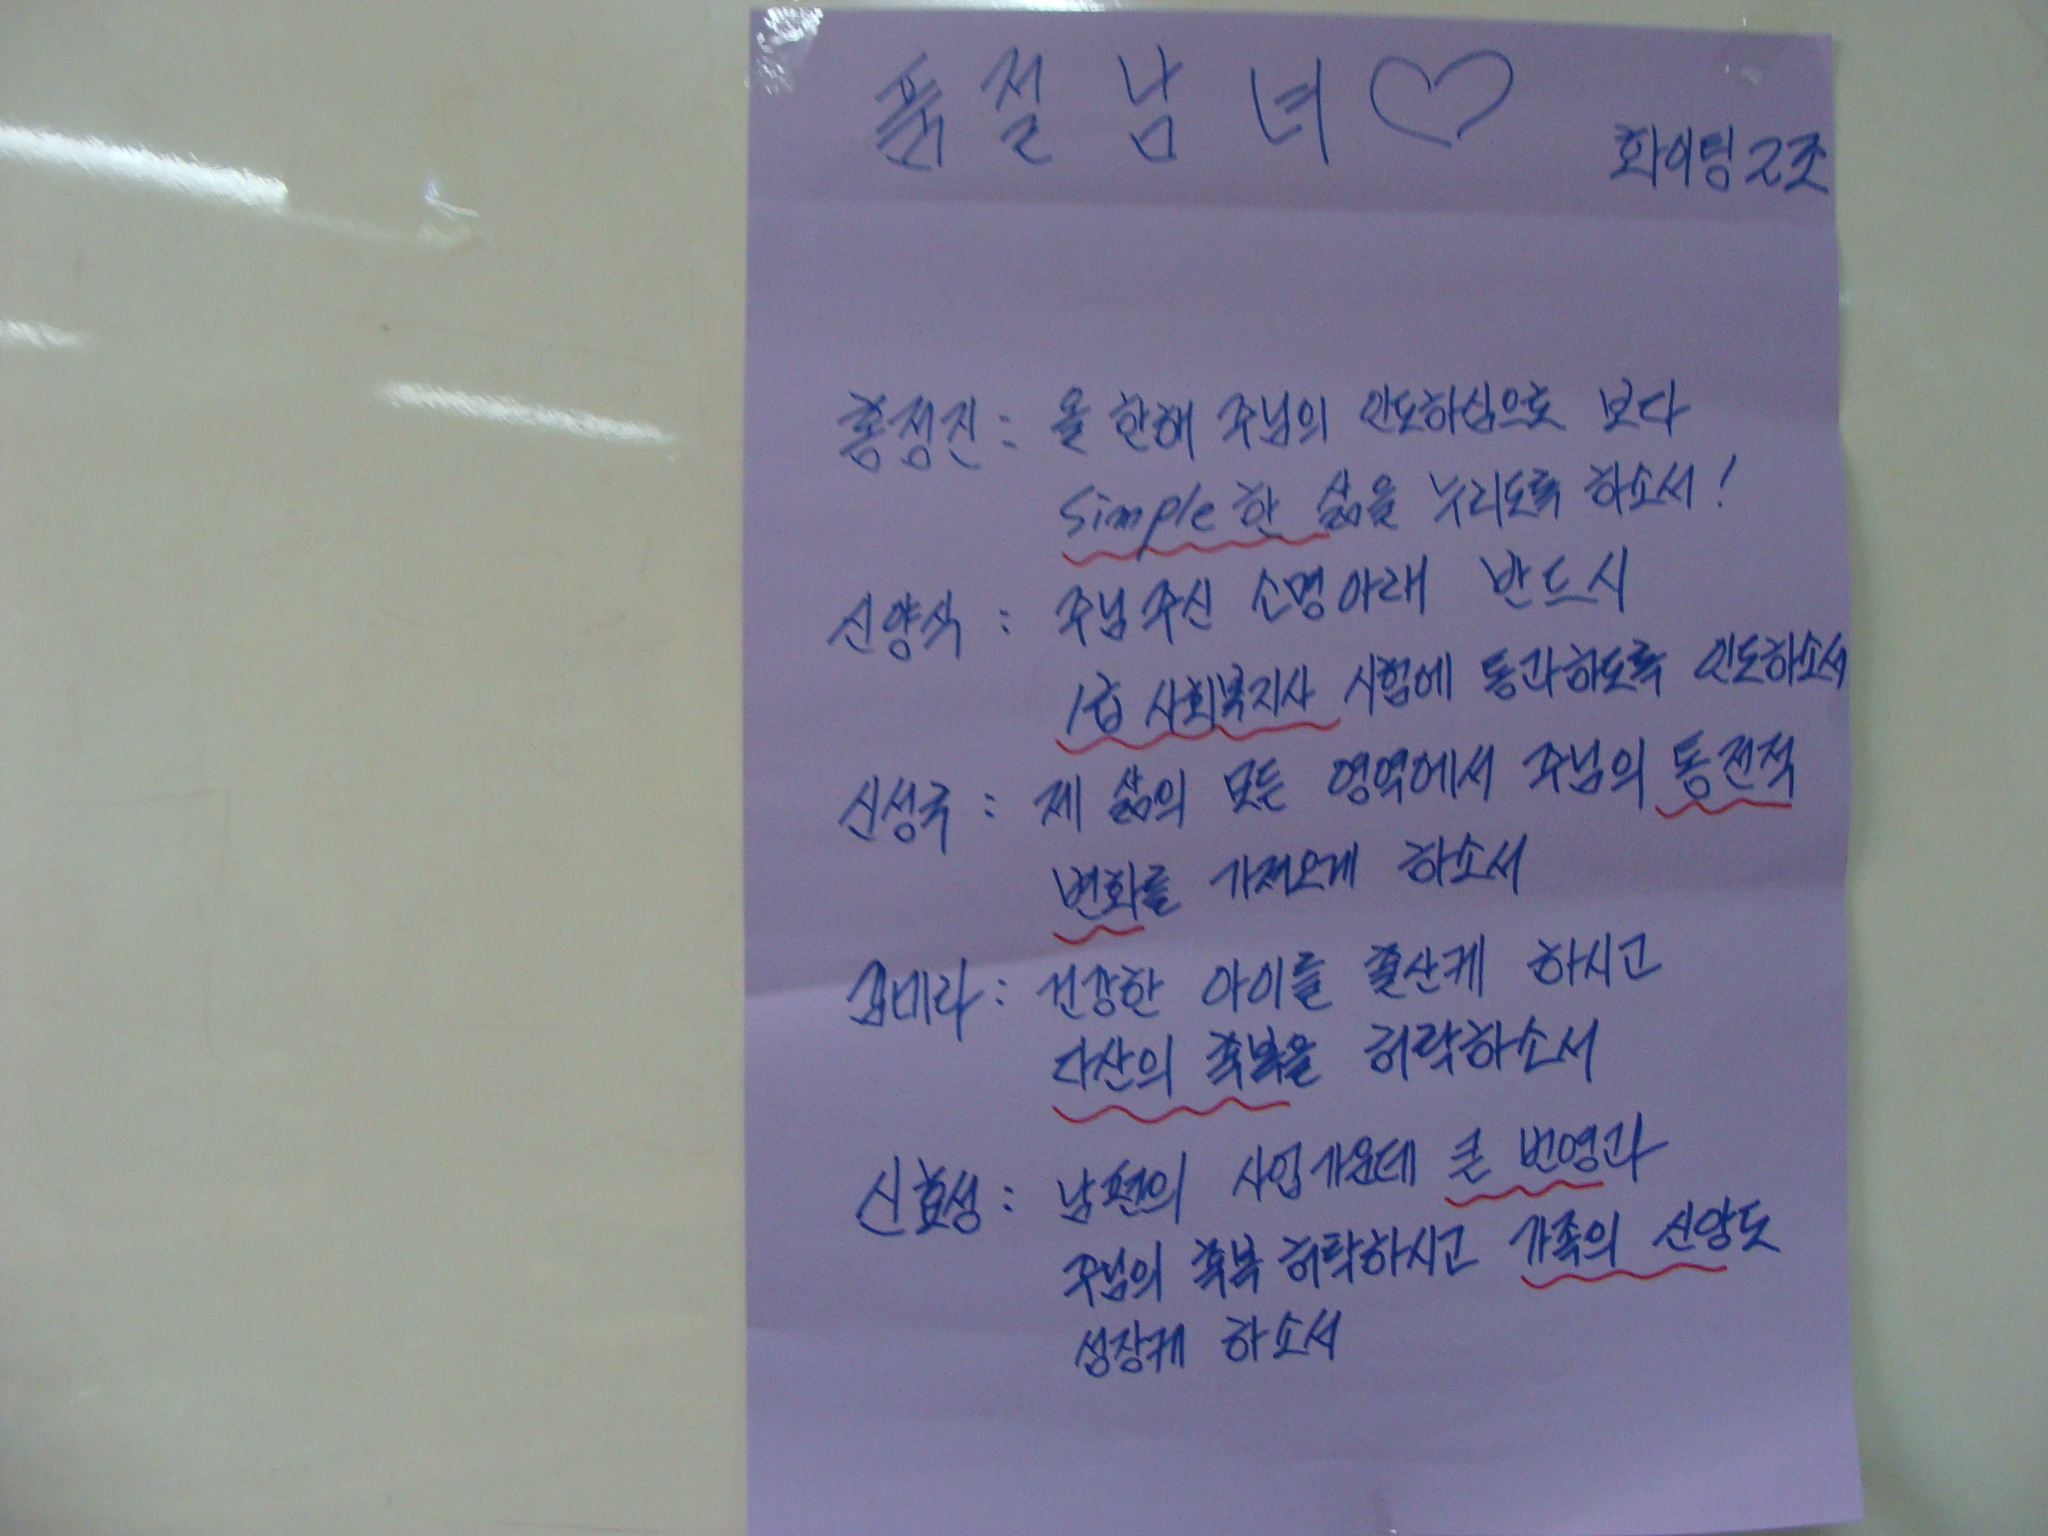 품절남녀♡
화이팅 2조
홍정진 : 올 한해 주님의 인도하심으로 보다
simple한 삶을 누리도록 하소서!
신양식 : 주님주신 소명아래 반드시
1급 사회복지사 시험에 통과하도록 인도하소서
신성국 : 제 삶의 모든 영역에서 주님의 통전적
변화를 가져오게 하소서
김미라 : 건강한 아이를 출산케 하시고
다산의 축복을 허락하소서
신효성 : 남편의 사업가운데 큰 번영과
주님의 축복 허락하시고 가족의 신앙도
성장케 하소서